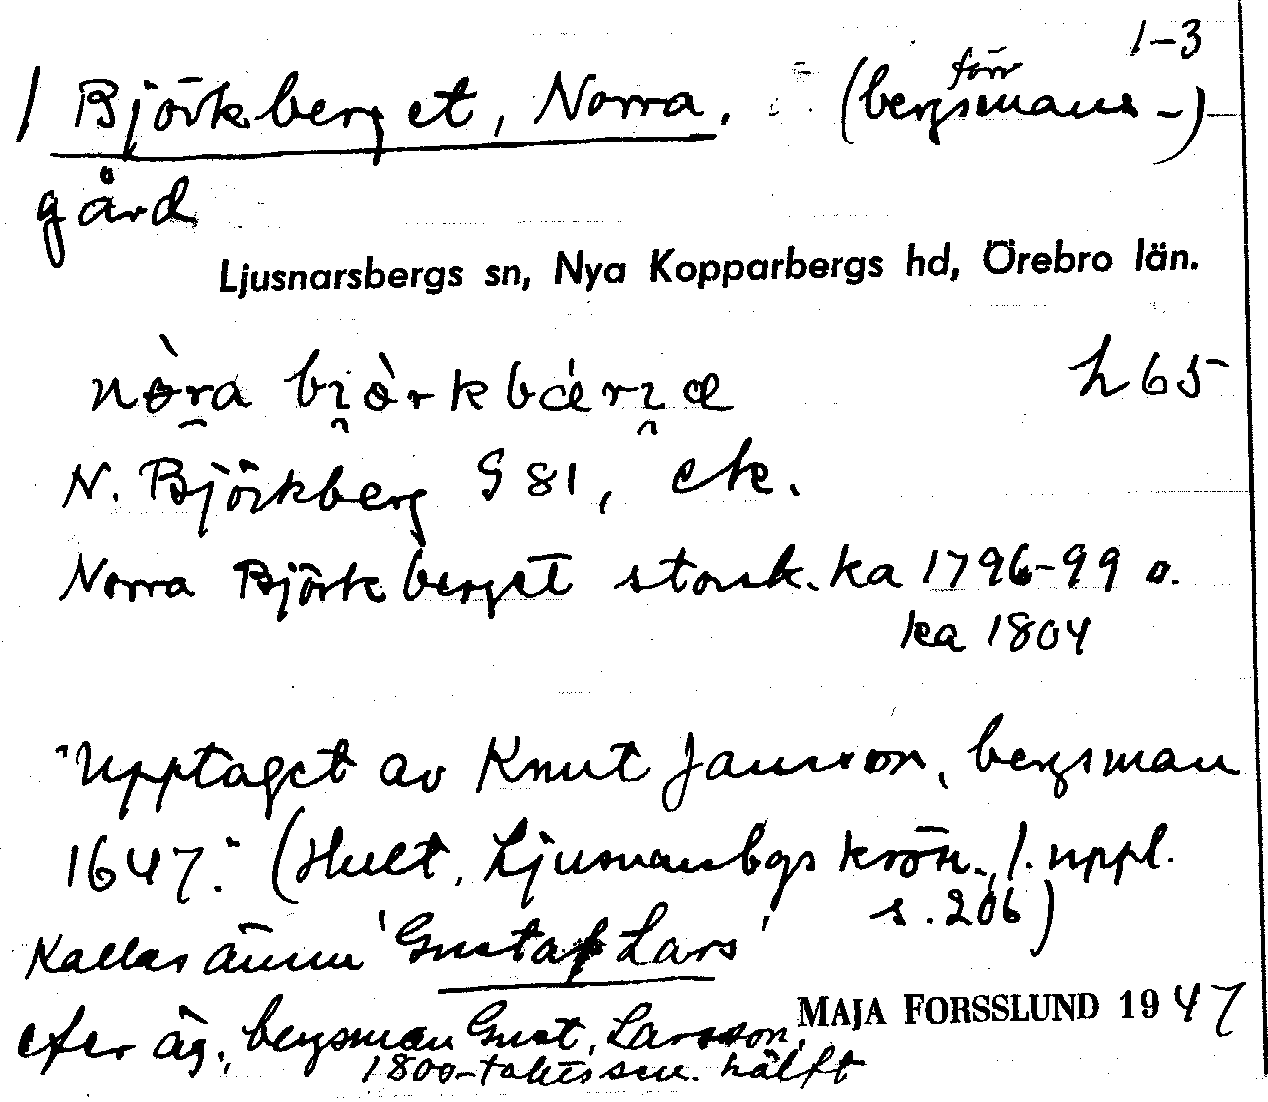 1-3
1 Björkberget, Norra. (förr bergsmans-)
gård
Ljusnarsbergs sn, Nya Kopparbergs hd, Örebro län.
nòra bi̯òrkbæri̯æ h65
N. Björkberg G 81, ek.
Norra Björkberget storsk.ka 1796-99 o.
ka 1804
"Upptaget av Knut Jansson, bergsman
1647." (Hult, Ljusnarsbgs krön., 1. uppl.
s. 206)
Kallas ännu 'Gustaf Lars'
efter äg. bergsman Gust. Larsson,
MAJA FORSSLUND 1947
1800-talets sen. hälft